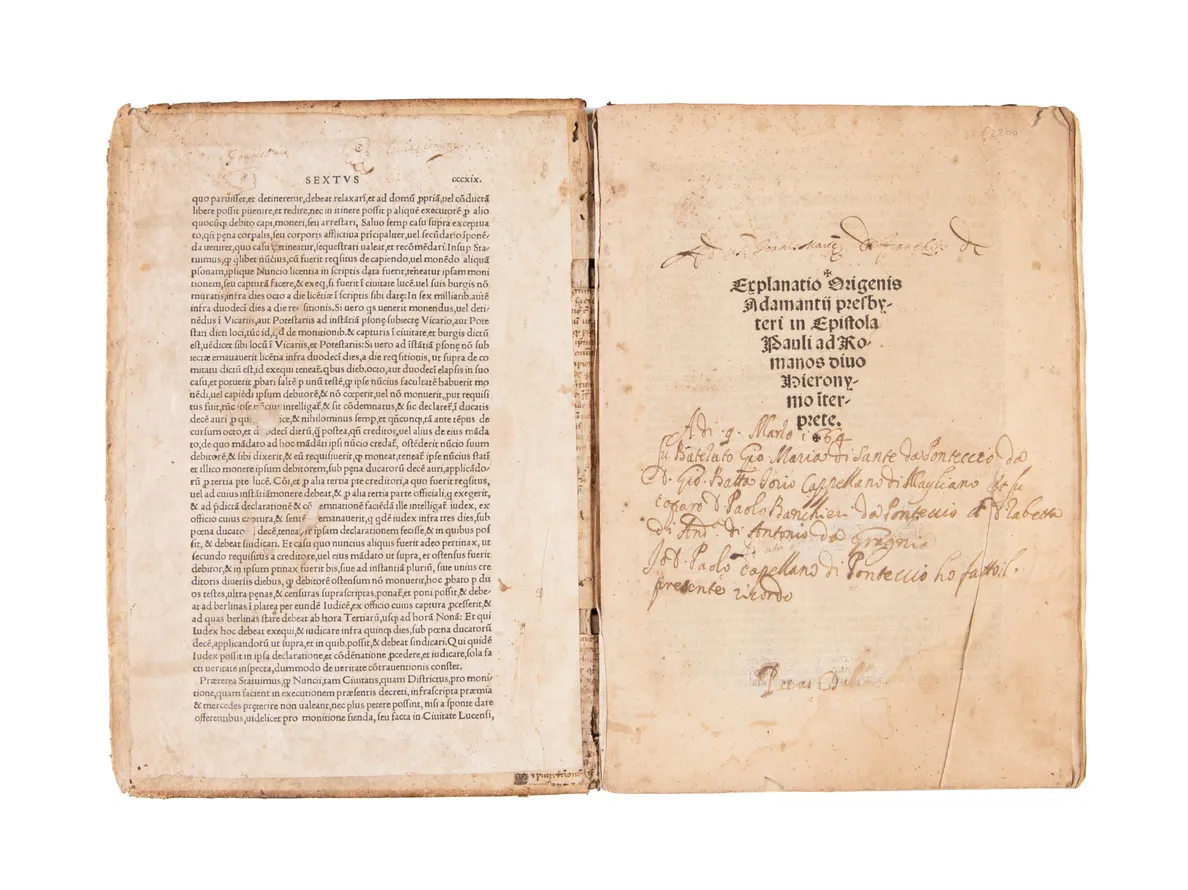 SEXTVS cccxix.
quo paruisset, et detineretur, debeat relaxari, et ad domũ ꝓpriã, uel cõductã
libere possit puenire, et redire, nec in itinere possit p aliquẽ executorẽ ꝓ alio
quocũqꝫ debito capi, moneri, seu arrestari, Saluo semp casu supra exceptua
to, qñ pena corporalis, seu corporis afflictiua prĩcipaliter, uel secũdario ĩponẽ
da ueniret, quo casu detineatur, sequestrari ualeat, et recõmẽdari. Insup Sta-
tuimus, qꝫ qlibet nũcius, cũ fuerit reqſitus de capiendo, uel monẽdo aliquã
psonam, ipsique Nuncio licentia in scriptis data fuerit, teneatur ipsam moni
tionem, seu capturã facere, & exeq, si fuerit ĩ ciuitate lucẽ. uel suis burgis nõ
muratis, infra dies octo a die licẽtiæ ĩ scriptis sibi datę: In sex milliarib. autẽ
infra duodecĩ dies a die reqſitionis, Si uero qs uenerit monendus, uel deti-
nẽdus ĩ Vicariis, aut Potestariis ad ĩstãtiã psonę subiectę Vicario, aut Pote
stati dicti loci, tũc id, qđ de monitionib. & capturis ĩ ciuitate, et burgis dictũ
est, uẽdicet sibi locũ ĩ Vicariis, et Potestariis: Si uero ad ĩstãtiã psonę nõ sub
iectæ emanauerit licẽtia infra duodecĩ dies, a die reqſitionis, ut supra de co
mitatu dictũ est, id exequi teneat̃. qbus dieb. octo, aut duodecĩ elapsis in suo
casu, et potuerit ꝓbari saltẽ p unũ testẽ, qꝫ ipse nũcius facultatẽ habuerit mo
nẽdi, uel capiẽdi ipsum debitorẽ, & nõ cœperit, uel nõ monuerit, put requisi
tus fuit, tũc ipse nũcius intelligat̃, & sit cõdemnatus, & sic declaret̃, ĩ ducatis
decẽ auri & nihilominus semp, et qñcunqꝫ, tã ante tẽpus de
cursum octo, et duodecĩ dierũ, qꝫ postea, qñ creditor, uel alius de eius mãda
to, de quo mãdato ad hoc mãdãti ipsi nũcio credat̃, ostẽderit nũcio suum
debitorẽ, & sibi dixerit, & eũ requisiuerit, qꝫ moneat, teneat̃ ipse nũcius statĩ
et illico monere ipsum debitorem, sub pęna ducatorũ decẽ auri, applicãdo-
rũ ꝓ tertia pte lucẽ. Cõi, et ꝓ alia tertia pte creditori, a quo fuerit reqſitus,
uel ad cuius instãtiã monere debeat, & ꝓ alia tertia parte officiali, q exegerit,
& ad p̃dictã declarationẽ & cõdemnationẽ faciẽdã ille intelligat̃ iudex, ex
officio cuius captura, & sentẽ emanauerit, q qdẽ iudex infra tres dies, sub
pœna ducatorũ decẽ, teneat̃ ipsam declarationem fecisse, & in quibus pos
sit, & debeat sindicari. Et casu quo nuncius aliquis fuerit adeo pertinax, ut
secundo requisitus a creditore, uel eius mãdato ut supra, et ostensus fuerit
debitor, & in ipsum ptinax fuerit bis, siue ad instantiã pluriũ, siue unius cre
ditoris diuersis diebus, qꝫ debitorẽ ostensum nõ monuerit, hoc ꝓbato p du
os testes, ultra penas, & censuras suprascriptas, ponat̃, et poni possit, & debe
at ad berlinas ĩ platea per eundẽ Iudicẽ, ex officio cuius captura ꝓcesserit, &
ad quas berlinas stare debeat ab hora Tertiarũ, usqꝫ ad horã Nonã: Et qui
Iudex hoc debeat exequi, & iudicare infra quinqꝫ dies, sub pœna ducatorũ
decẽ, applicandorũ ut supra, et in quib. possit, & debeat sindicari. Qui quidẽ
Iudex possit in ipsa declaratione, et cõdẽnatione ꝓcedere, et iudicare, sola fa
cti ueritate inspecta, dummodo de ueritate cõtrauentionis constet.
Præterea Statuimus, qꝫ Nuncii, tam Ciuitatis, quam Districtus, pro moni-
tione, quam facient in executionem præsentis decreti, infrascripta præmia
& mercedes preterire non ualeant, nec plus petere possint, nisi a sponte dare
offerentibus, uidelicet pro monitione fienda, seu facta in Ciuitate Lucensi,
Explanatio Origenis
Adamantij presby-
teri in Epistola
Pauli ad Ro-
manos diuo
Hierony-
mo ĩter-
prete.
Adi 9. Marzo 1664
fu Bateluto Gio Maria di Sante da Ponteccio da
D. Gio. Batta Iorio Cappellano di Magliano et fu
coparo D. Paolo Banchieri da Ponteccio et Isabetta
di And. di Antonio da Gragnia
Io D. Paolo capellano di Ponteccio ho fatto il
presente ricordo
Petrus